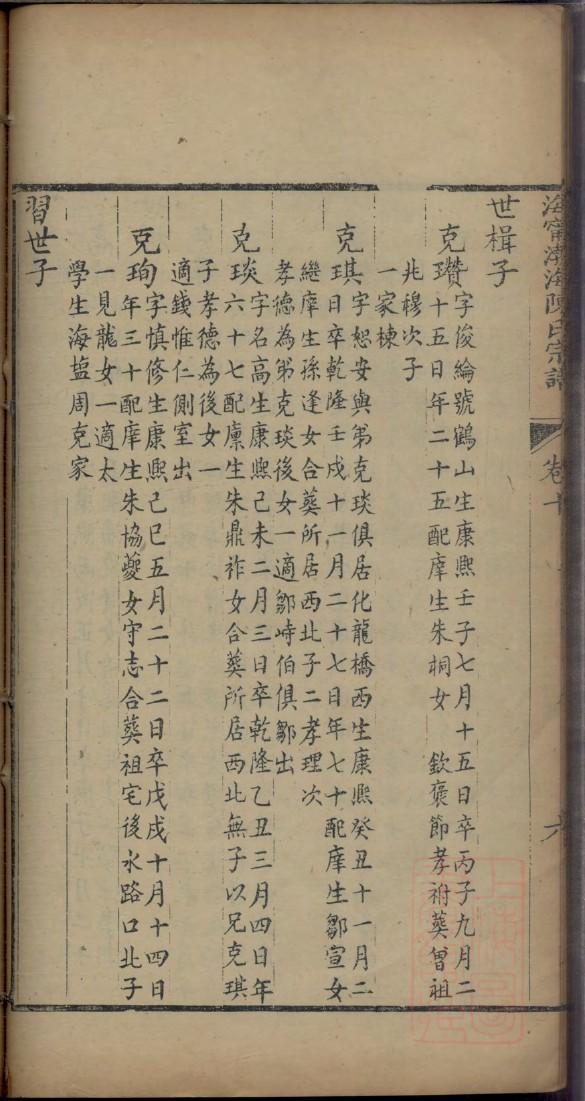 海寧渤海陳氏宗譜
卷十
六
世楫子
克瓚字俊綸號鶴山生康熙壬子七月十五日卒丙子九月二
十五日年二十五配庠生朱桐女 欽褒節孝祔葬曾祖
兆穆次子
一家棟
克琪字恕安與弟克琰俱居化龍橋西生康熙癸丑十一月二
日卒乾隆壬戌十一月二十七日年七十配庠生鄒宣女
繼庠生孫逢女合葬所居西北子二孝理次
孝德為弟克琰後女一適鄒峙伯俱鄒出
克琰字名高生康熙己未二月三日卒乾隆乙丑三月四日年
六十七配廩生朱鼎祚女合葬所居西北無子以兄克琪
子孝德為後女一
適錢惟仁側室出
克珣字慎修生康熙己巳五月二十二日卒戊戌十月十四日
年三十配庠生朱協夔女守志合葬祖宅後水路口北子
一見龍女一適太
學生海塩周克家
習世子